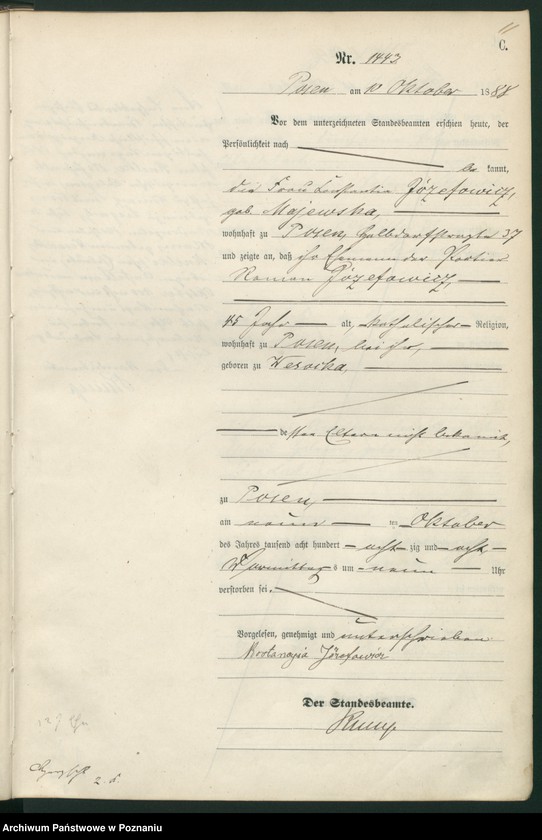 C.
Nr. 1443
Posen am 10 Oktober 1888
Vor dem unterzeichneten Standesbeamten erschien heute, der
Persönlichkeit nach
be kannt,
die Frau Konstantia Józefowicz,
geb. Majewska,
wohnhaft zu Posen, Halbdorfstraße 37
und zeigte an, daß ihr Ehemann der Portier
Roman Józefowicz,
45 Jahr alt, katholischer Religion,
wohnhaft zu Posen, bei ihr,
geboren zu
dessen Eltern nicht bekannt,
zu Posen,
am neun ten Oktober
des Jahres tausend acht hundert acht zig und acht
Vormittags um neun Uhr
verstorben sei.
Vorgelesen, genehmigt und unterschrieben
Józefowicz
Der Standesbeamte.
Archiwum Państwowe w Poznaniu